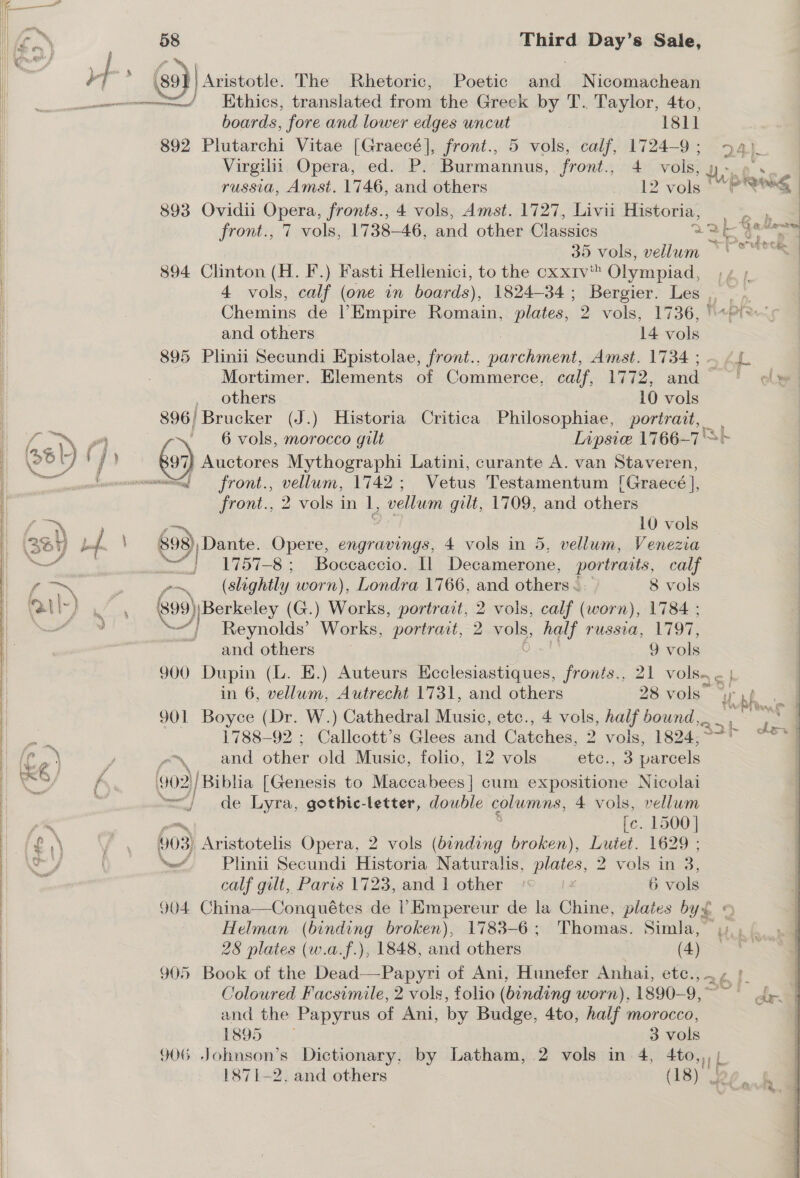 58 Third Day's Sale,
891 Aristotle. The Rhetoric, Poetic and Nicomachean
Ethics, translated from the Greek by T. Taylor, 4to,
boards, fore and lower edges uncut 1811
892 Plutarchi Vitae [Graecé], front., 5 vols, calf, 1724-9 ;
Virgilii Opera, ed. P. Burmannus, front., 4 vols,
russia, Amst. 1746, and others 12 vols
893 Ovidii Opera, fronts., 4 vols, Amst. 1727, Livii Historia,
front., 7 vols, 1738-46, and other Classics
35 vols, vellum
894 Clinton (H. F.) Fasti Hellenici, to the CXXIVth Olympiad,
4 vols, calf (one in boards), 1824-34 ; Bergier. Les
Chemins de l'Empire Romain, plates, 2 vols, 1736,
and others 14 vols
895 Plinii Secundi Epistolae, front., parchment, Amst. 1734 ;
Mortimer. Elements of Commerce, calf, 1772, and
others 10 vols
896 Brucker (J.) Historia Critica Philosophiae, portrait,
6 vols, morocco gilt Lipsiæ 1766-7
897 Auctores Mythographi Latini, curante A. van Staveren,
front., vellum, 1742 ; Vetus Testamentum [Graecé],
front., 2 vols in 1, vellum gilt, 1709, and others
10 vols
898 Dante. Opere, engravings, 4 vols in 5, vellum, Venezia
1757-8 ; Boccaccio. Il Decamerone, portraits, calf
(slightly worn), Londra 1766, and others 8 vols
899 Berkeley (G.) Works, portrait, 2 vols, calf (worn), 1784 ;
Reynolds' Works, portrait, 2 vols, half russia, 1797,
and others 9 vols
900 Dupin (L. E.) Auteurs Ecclesiastiques, fronts., 21 vols
in 6, vellum, Autrecht 1731, and others 28 vols
901 Boyce (Dr. W.) Cathedral Music, etc., 4 vols, half bound,
1788-92 ; Callcott's Glees and Catches, 2 vols, 1824,
and other old Music, folio, 12 vols etc., 3 parcels
902 Biblia [Genesis to Maccabees] cum expositione Nicolai
de Lyra, gothic-letter, double columns, 4 vols, vellum
[c. 1500]
903 Aristotelis Opera, 2 vols (binding broken), Lutet. 1629 ;
Plinii Secundi Historia Naturalis, plates, 2 vols in 3,
calf gilt, Paris 1723, and 1 other 6 vols
904 China—Conquétes de l'Empereur de la Chine, plates by
Helman (binding broken), 1783-6 ; Thomas. Simla,
28 plates (w.a.f.), 1848, and others (4)
905 Book of the Dead—Papyri of Ani, Hunefer Anhai, etc.,
Coloured Facsimile, 2 vols, folio (binding worn), 1890-9,
and the Papyrus of Ani, by Budge, 4to, half morocco,
1895 3 vols
906 Johnson's Dictionary, by Latham, 2 vols in 4, 4to,
1871-2, and others (18)